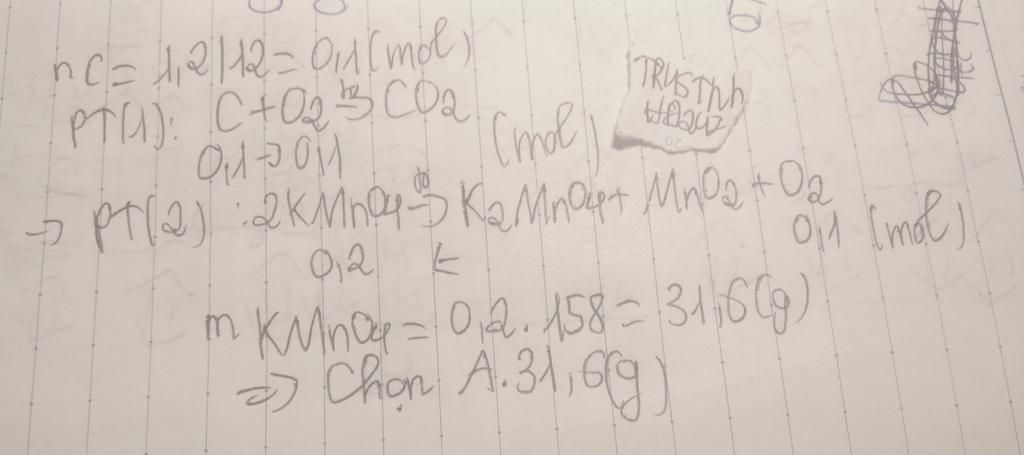 nC = 1,2/12 = 0,1 (mol)
PT(1): C + O2 → CO2
0,1 → 0,1 (mol)
→ PT(2) : 2KMnO4 → K2MnO4 + MnO2 + O2
0,2 ← 0,1 (mol)
mKMnO4 = 0,2 . 158 = 31,6(g)
=> Chọn A. 31,6(g)